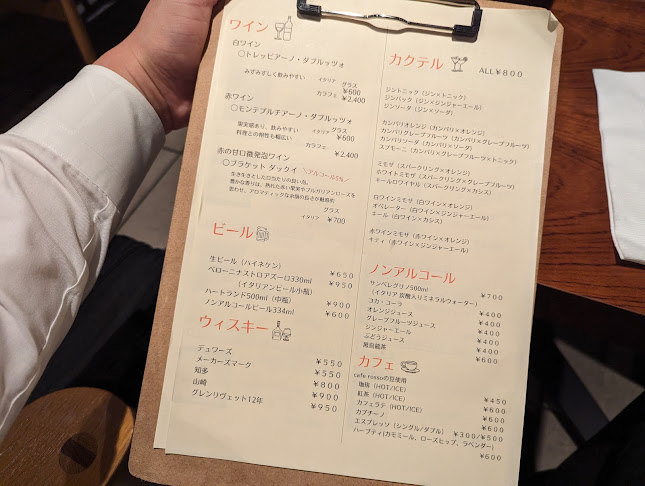 ワイン
白ワイン
○トレッビアーノ・ダブルッツォ
みずみずしく飲みやすい
イタリア グラス ¥600
カラフェ ¥2,400
赤ワイン
○モンテプルチアーノ・ダブルッツォ
果実感あり、飲みやすい
料理との相性も幅広い
イタリア グラス ¥600
カラフェ ¥2,400
赤の甘口微発泡ワイン
○ブラケット ダックイ \アルコール5%/
生き生きとした口当たりの良い泡。
豊かな香りは、熟れた赤い果実やブルガリアンローズを
思わせ、アロマティックな余韻の長さが魅惑的
イタリア グラス ¥700
ビール
生ビール（ハイネケン） ¥650
ペローニナストロアズーロ330ml ¥950
（イタリアンビール小瓶）
ハートランド500ml（中瓶） ¥900
ノンアルコールビール334ml ¥600
ウィスキー
デュワーズ ¥550
メーカーズマーク ¥550
知多 ¥800
山崎 ¥900
グレンリヴェット12年 ¥950
カクテル ALL¥800
ジントニック（ジン×トニック）
ジンバック（ジン×ジンジャーエール）
ジンソーダ（ジン×ソーダ）
カンパリオレンジ（カンパリ×オレンジ）
カンパリグレープフルーツ（カンパリ×グレープフルーツ）
カンパリソーダ（カンパリ×ソーダ）
スプモーニ（カンパリ×グレープフルーツ×トニック）
ミモザ（スパークリング×オレンジ）
ホワイトミモザ（スパークリング×グレープフルーツ）
キールロワイヤル（スパークリング×カシス）
白ワインミモザ（白ワイン×オレンジ）
オペレーター（白ワイン×ジンジャーエール）
キール（白ワイン×カシス）
赤ワインミモザ（赤ワイン×オレンジ）
キティ（赤ワイン×ジンジャーエール）
ノンアルコール
サンペレグリノ500ml ¥700
（イタリア 炭酸入りミネラルウォーター）
コカ・コーラ ¥400
オレンジジュース ¥400
グレープフルーツジュース ¥400
ジンジャーエール ¥400
ぶどうジュース ¥600
黒烏龍茶
カフェ
cafe rossoの豆使用
珈琲（HOT/ICE） ¥450
紅茶（HOT/ICE） ¥600
カフェラテ（HOT/ICE） ¥600
カプチーノ ¥600
エスプレッソ（シングル/ダブル） ¥300/¥500
ハーブティ(カモミール、ローズヒップ、ラベンダー)
¥600